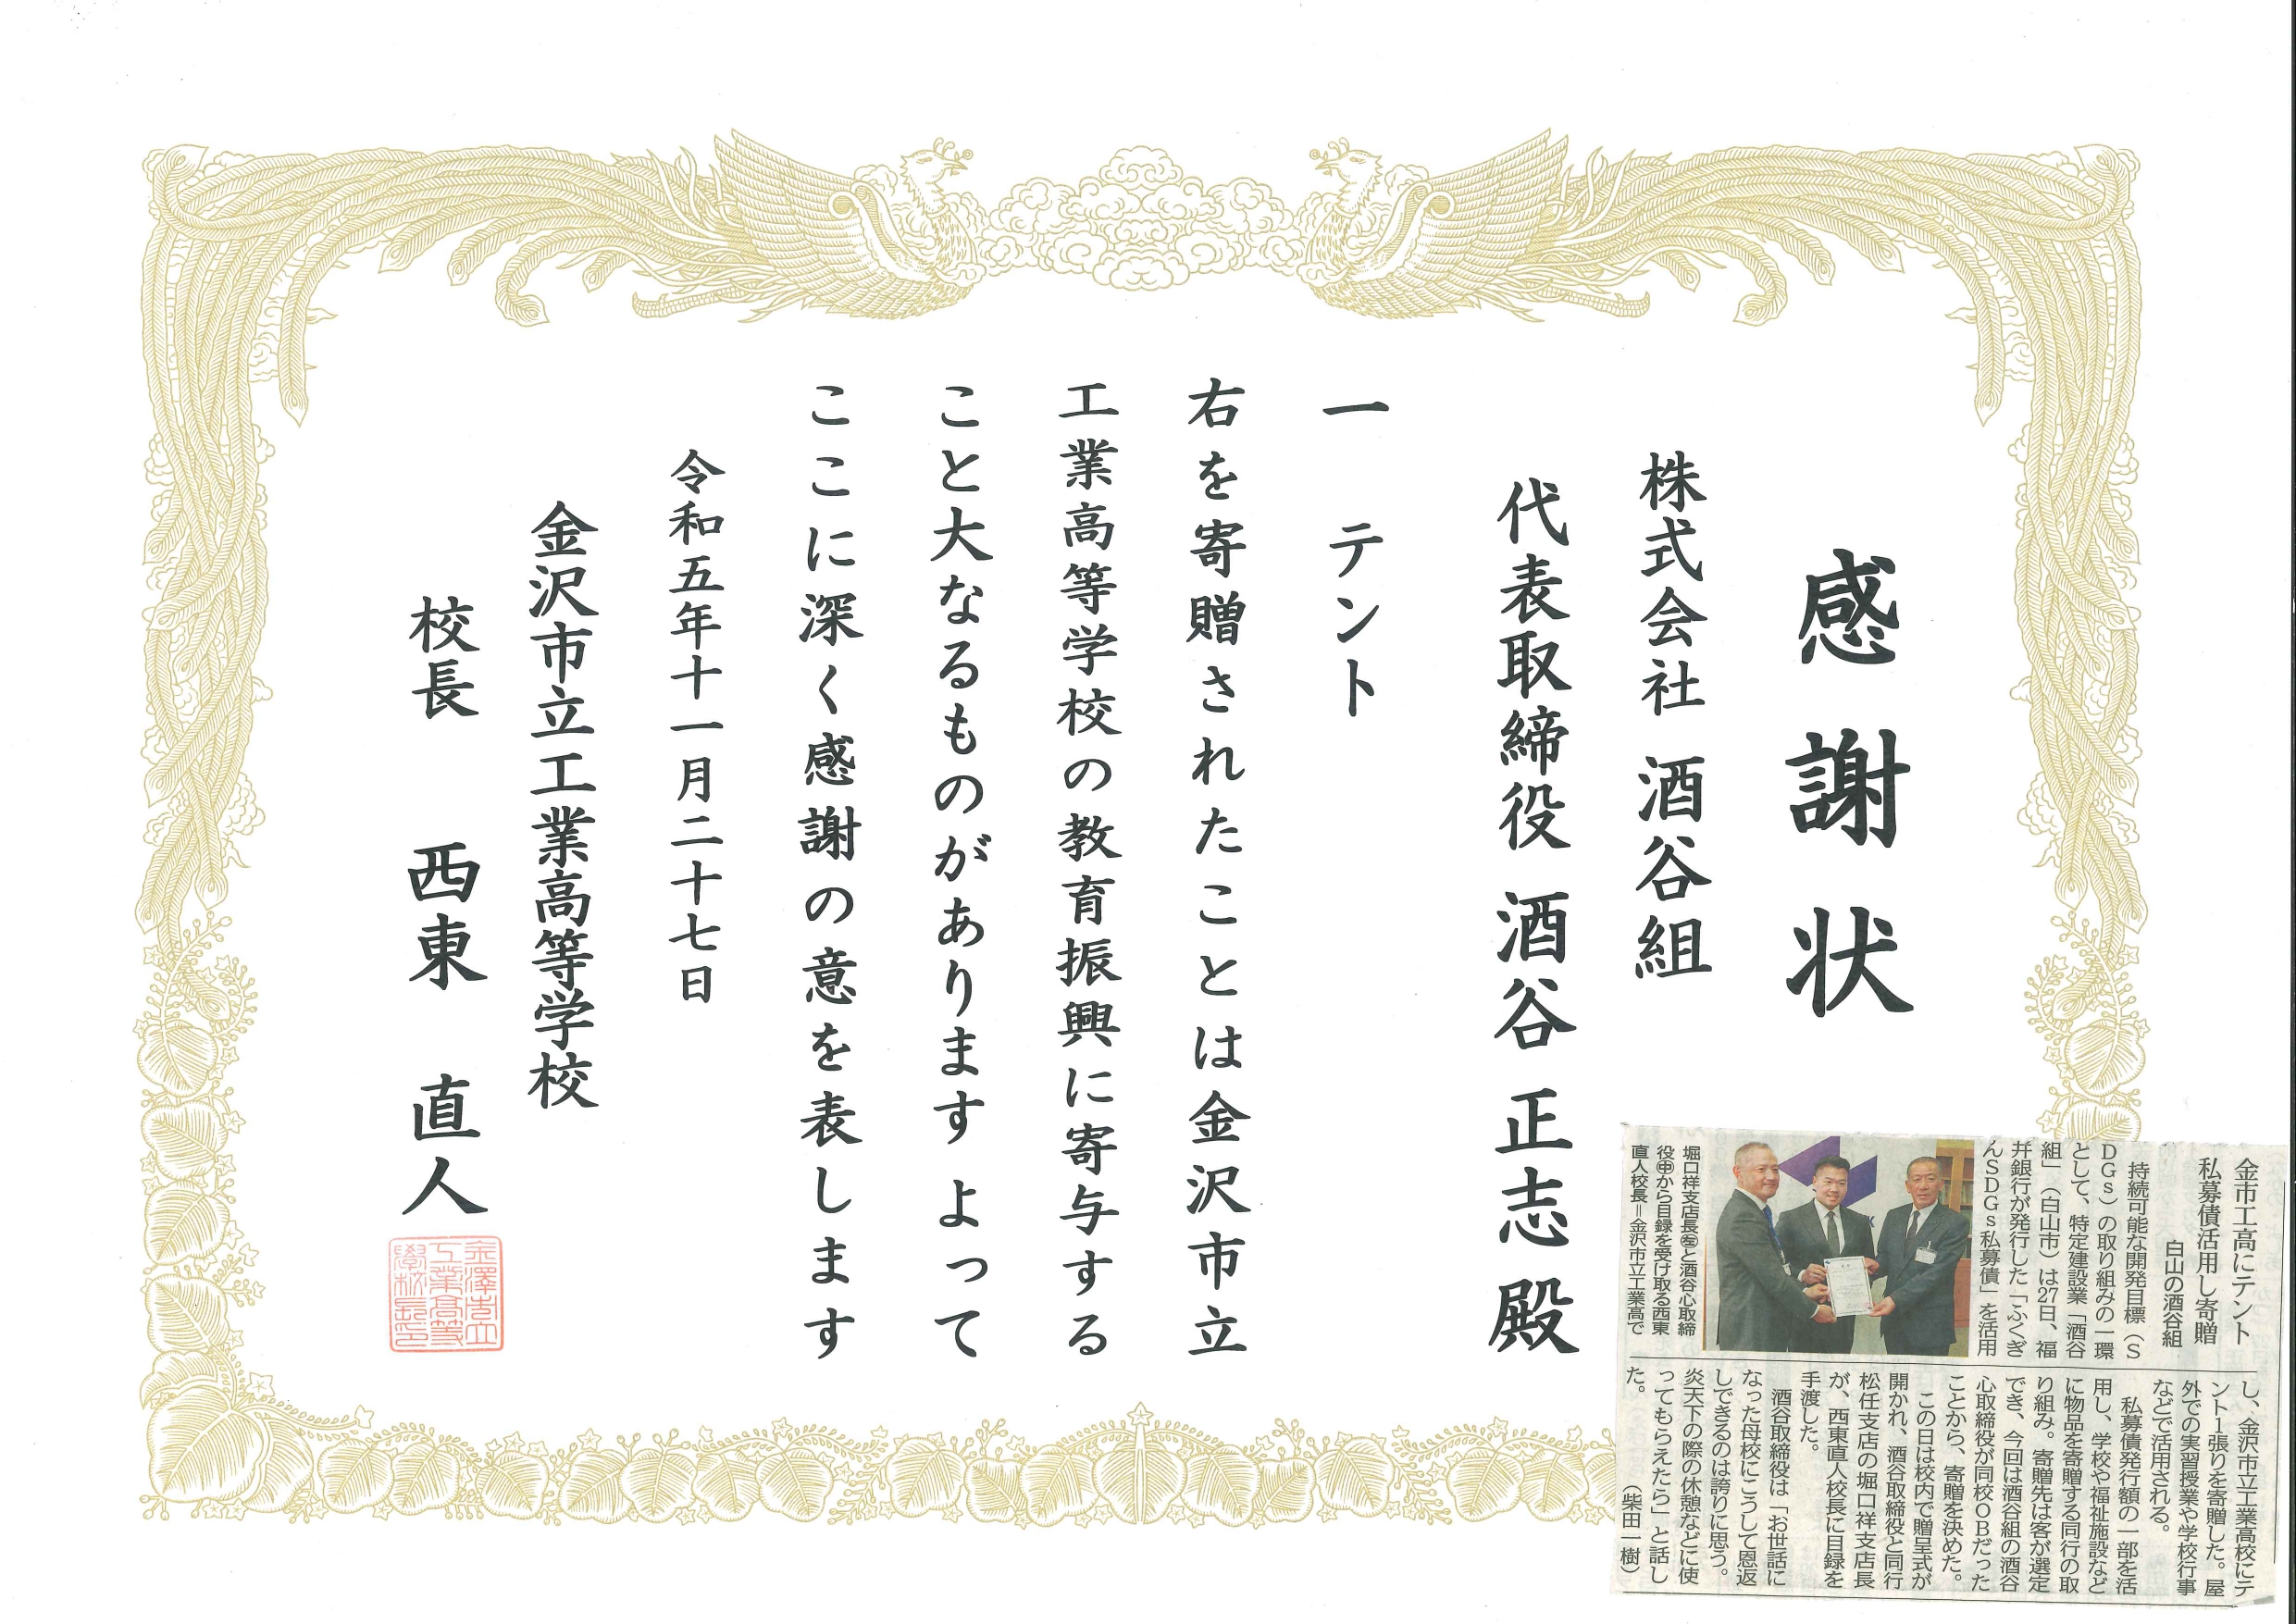 感謝状
株式会社 酒谷組
代表取締役 酒谷 正志 殿
一 テント
右を寄贈されたことは金沢市立
工業高等学校の教育振興に寄与する
こと大なるものがあります よって
ここに深く感謝の意を表します
令和五年十一月二十七日
金沢市立工業高等学校
校長 西東 直人
金澤市立
工業高等
學校長印
金市工高にテント
私募債活用し寄贈
白山の酒谷組
持続可能な開発目標（S
DGs）の取り組みの一環
として、特定建設業「酒谷
組」（白山市）は27日、福
井銀行が発行した「ふくぎ
んSDGs私募債」を活用
堀口祥支店長㊧と酒谷心取締
役㊥から目録を受け取る西東
直人校長＝金沢市立工業高で
し、金沢市立工業高校にテ
ント1張りを寄贈した。屋
外での実習授業や学校行事
などで活用される。
私募債発行額の一部を活
用し、学校や福祉施設など
に物品を寄贈する同行の取
り組み。寄贈先は客が選定
でき、今回は酒谷組の酒谷
心取締役が同校OBだった
ことから、寄贈を決めた。
この日は校内で贈呈式が
開かれ、酒谷取締役と同行
松任支店の堀口祥支店長
が、西東直人校長に目録を
手渡した。
酒谷取締役は「お世話に
なった母校にこうして恩返
しできるのは誇りに思う。
炎天下の際の休憩などに使
ってもらえたら」と話し
た。 （柴田一樹）